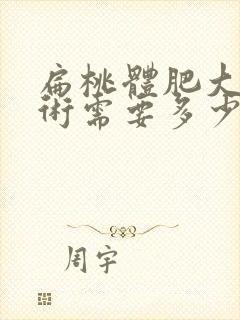 扁桃體肥大
術需要多少
周宇